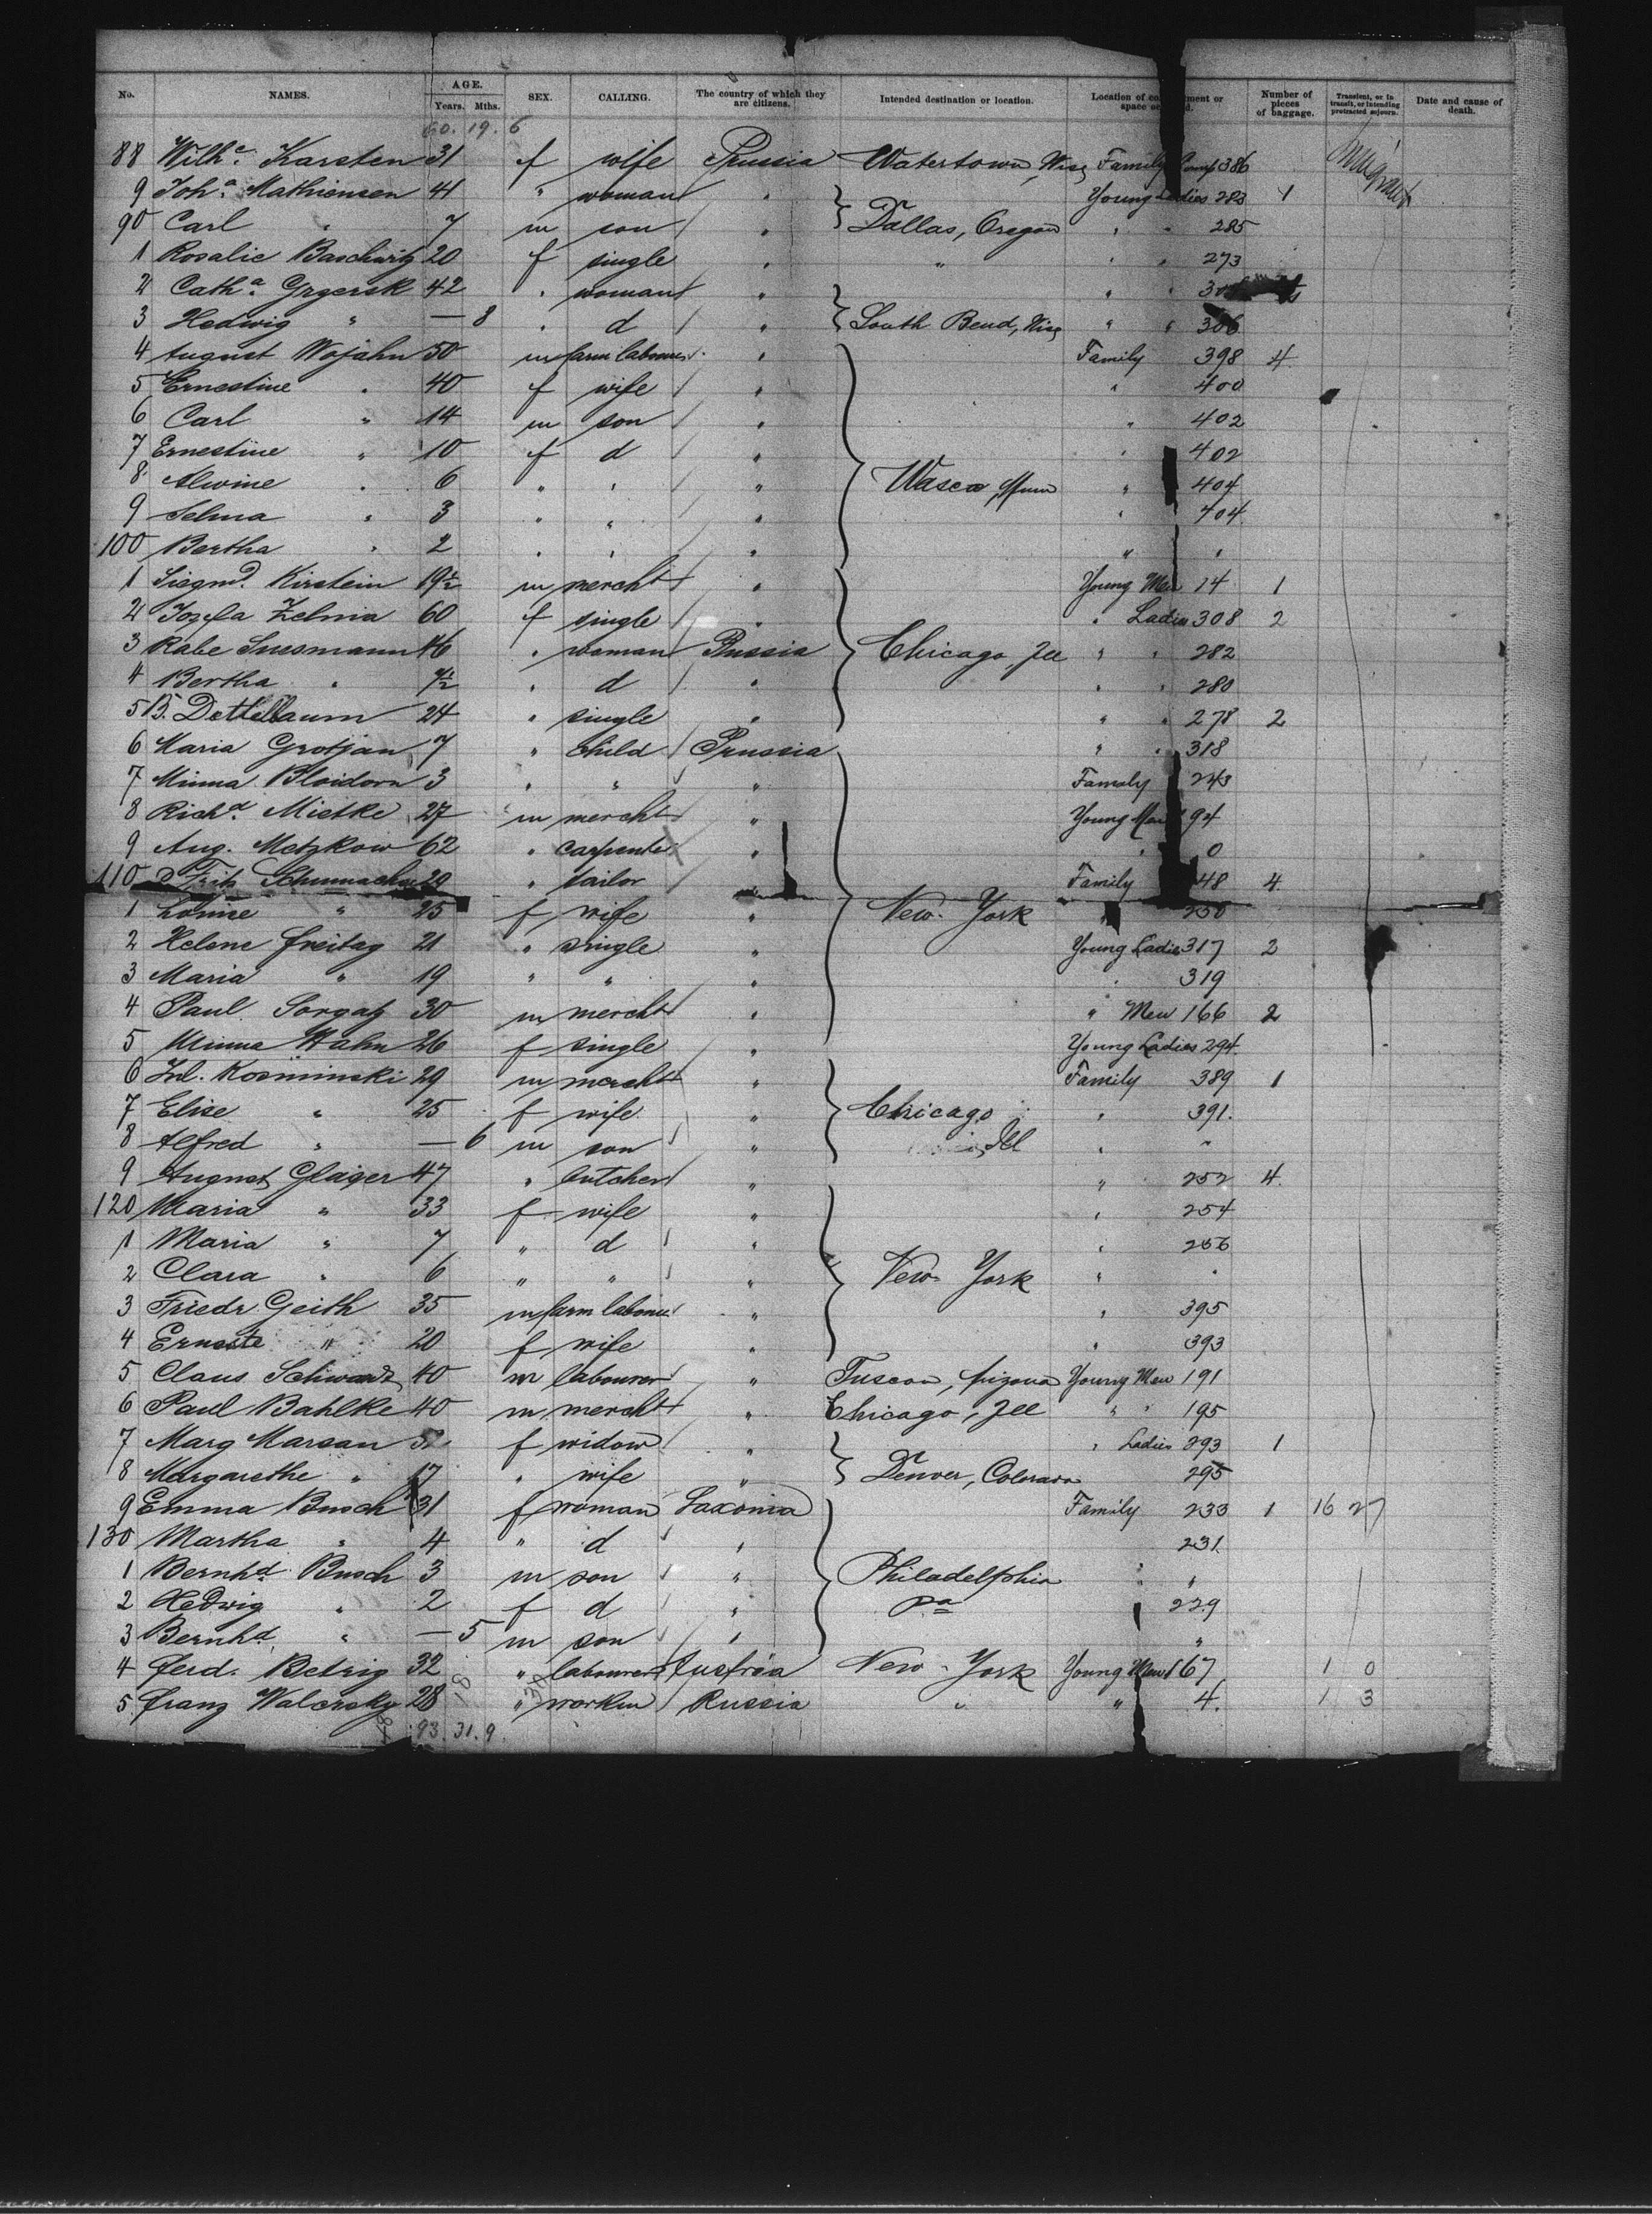 No. NAMES. AGE. Years. Mths. SEX. CALLING. The country of which they are citizens. Intended destination or location. Location of compartment or space Number of pieces of baggage. Transient, or in transit, or intending protracted sojourn. Date and cause of death.
60. 19. 6
88 Wilh.e Karsten 31 f wife Prussia Watertown, Wisc Family Comp 386
9 Joh.a Mathiensen 41 " woman " Young Ladies 283 1
90 Carl " 7 m son " Dallas, Oregon " " 285
1 Rosalie Baschwitz 20 f single " " " " 273
2 Cath.a Grgersk 42 " woman " " "
3 Hedwig " — 8 " d " South Bend, Wisc " " 306
4 August Wojahn 50 m farm labourer " Family 398 4
5 Ernestine " 40 f wife " " 400
6 Carl " 14 m son " " 402
7 Ernestine " 10 f d " " 402
8 Alwine " 6 " " " Waseca, Minn " 404
9 Selma " 3 " " " " 404
100 Bertha " 2 " " " " "
1 Siegmd. Kirstein 19½ m mercht " Young Men 14 1
2 Jozefa Zelnia 60 f single " " Ladies 308 2
3 Rabe Susmann 46 " woman Russia Chicago, Ill " " 282
4 Bertha " 7½ " d " " " 280
5 B. Dettelbaum 24 " single " " " 278 2
6 Maria Grotjan 7 " child Prussia " " 318
7 Minna Bloidorn 3 " " " Family 243
8 Richd Mietke 27 m mercht " Young Men 94
9 Aug. Metzkow 62 " carpenter " " 0
110 Fritz Schumacher 29 " tailor " Family 48 4
1 Louise " 25 f wife " New-York " 250
2 Helene Freitag 21 " single " Young Ladies 317 2
3 Maria " 19 " " " " 319
4 Paul Sorgatz 30 m mercht " " Men 166 2
5 Minna Hahn 26 f single " Young Ladies 294
6 Jul. Kosminski 29 m mercht " Family 389 1
7 Elise " 25 f wife " Chicago " 391.
8 Alfred " — 6 m son " Ill " "
9 August Gläger 47 " butcher " " 252 4.
120 Maria " 33 f wife " " 254
1 Maria " 7 " d " " 256
2 Clara " 6 " " " New-York " "
3 Friedr Geith 35 m farm labourer " " 395
4 Erneste " 20 f wife " " 393
5 Claus Schwardz 40 m labourer " Tuscon, Arizona Young Men 191
6 Paul Bahlke 40 m mercht " Chicago, Ill " " 195
7 Marg Marsan f widow " " Ladies 293 1
8 Margarethe " 17 " wife " Denver, Colorado 295
9 Emma Busch 31 f woman Saxonia Family 233 1 16 27
130 Martha " 4 " d " 231.
1 Bernhd Busch 3 m son " Philadelphia " "
2 Hedwig " 2 f d " Pa 229
3 Bernhd " — 5 m son " "
4 Ferd. Betzig 32 " labourer Austria New-York Young Men 167 1 0
5 Franz Walersky 28 " workm Russia " " 4. 1 3
93. 31. 9